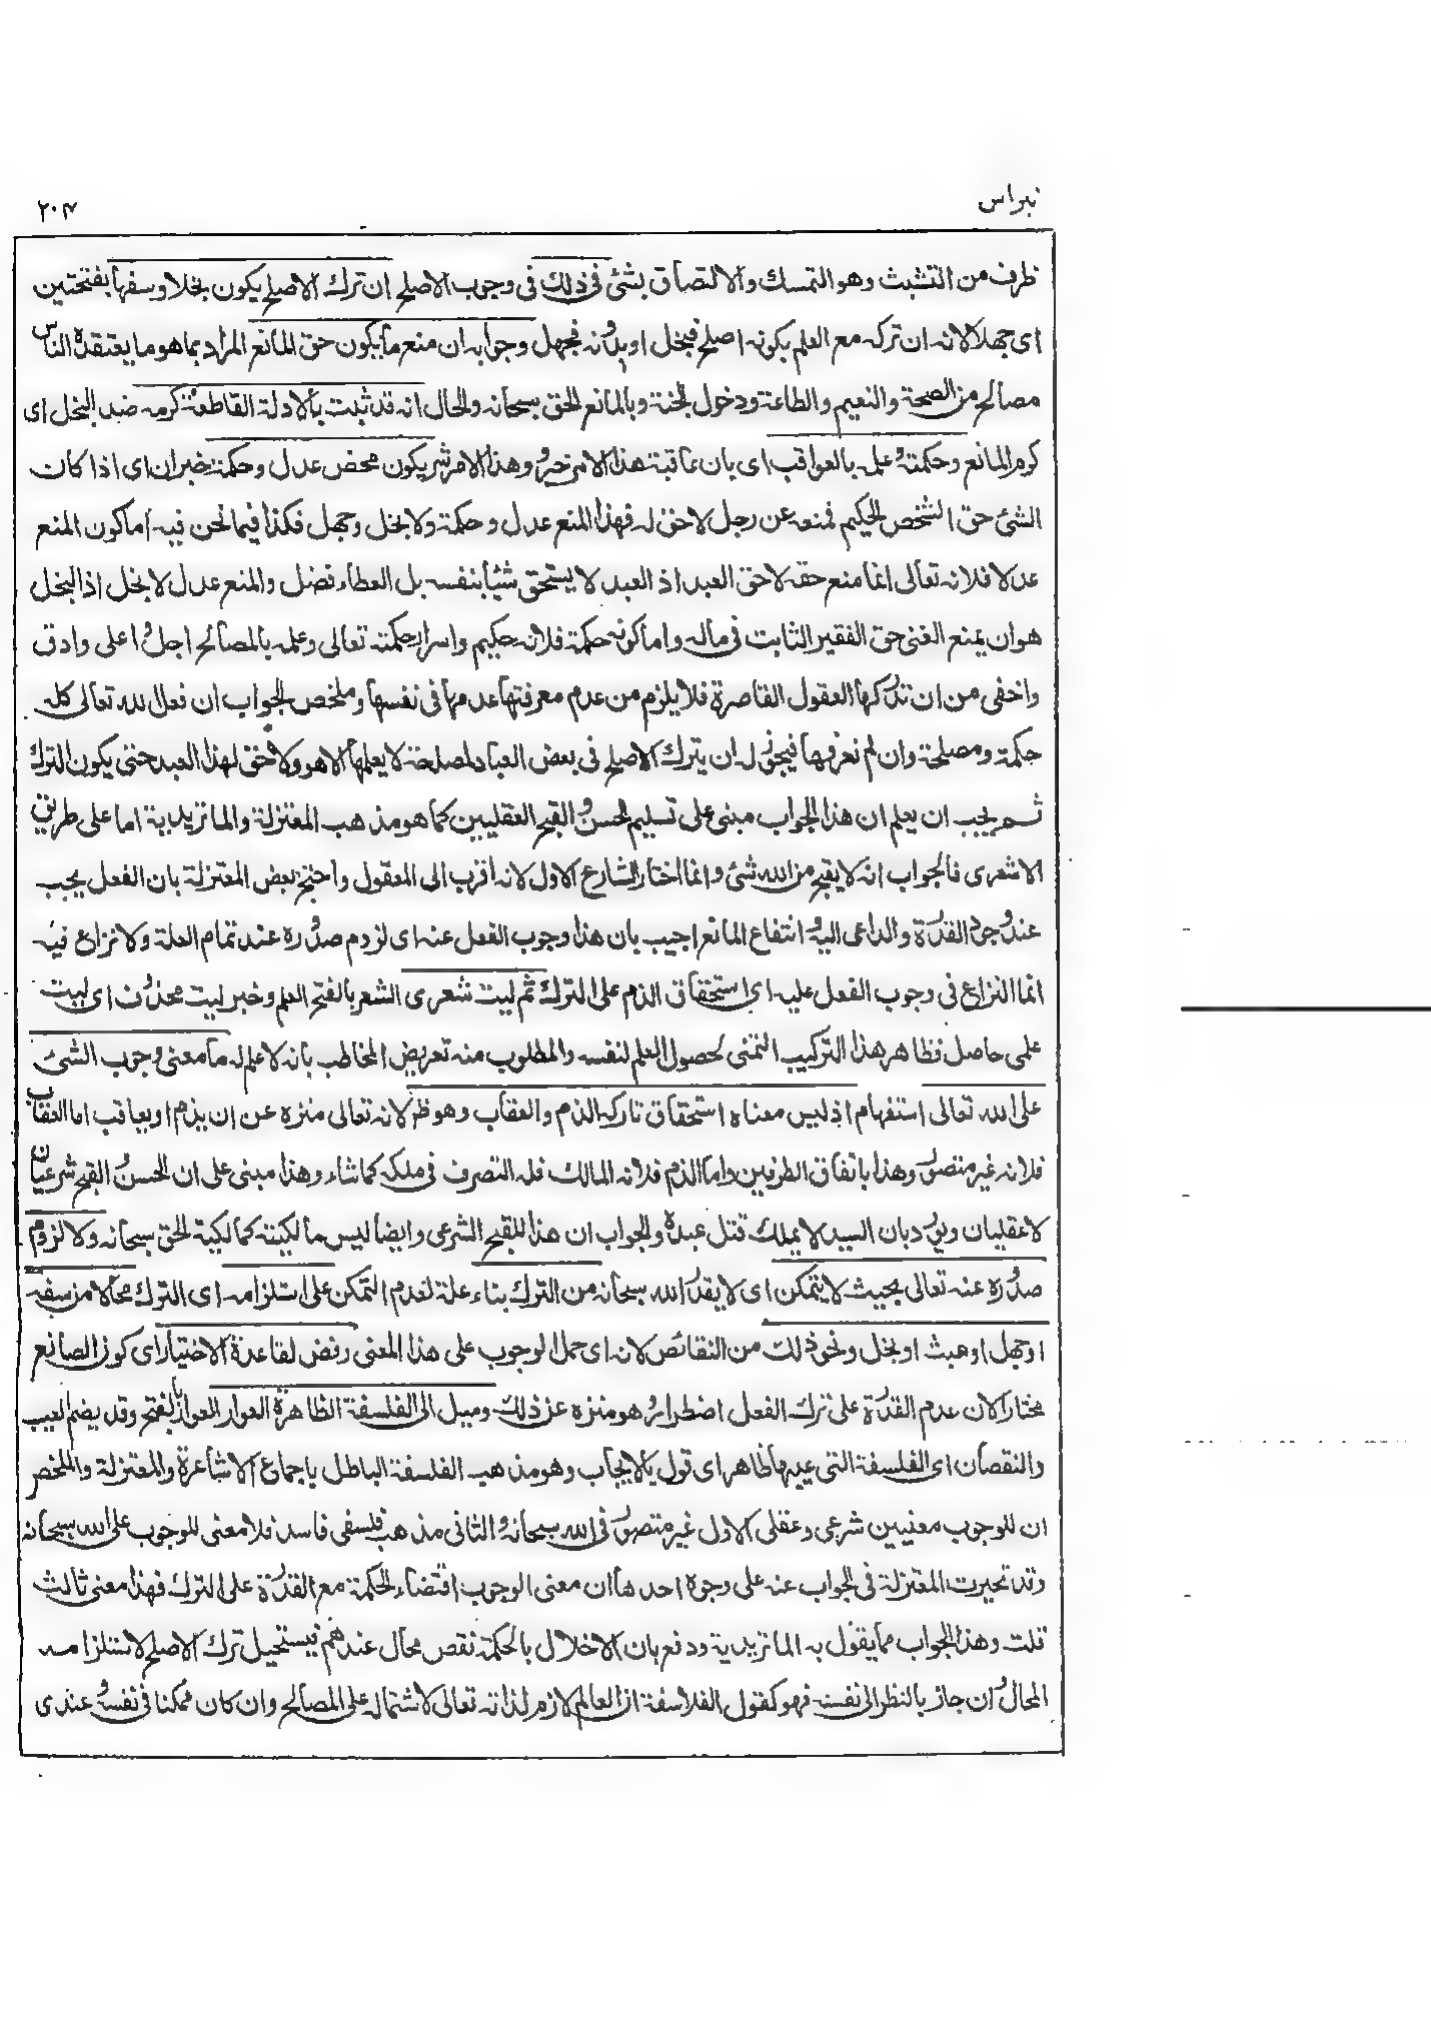 نبراس
٢٠٣
ظرف من التشبث وهو التمسك والالتصاق بشئ فى ذلك فى وجوب الاصلح ان ترك الاصلح يكون بخلا وسفها بفتحتين
اى جهلا لانه ان تركه مع العلم بكونه اصلح فبخل او بدونه فجهل وجوابه ان منع ما يكون حق المانع المراد بما هو ما يعتقدة الناس
مصالح من الصحة والنعيم والطاعة ودخول الجنة وبالمانع الحق سبحانه والحال انه قد ثبت بالادلة القاطعة كرمه ضد البخل اى
كرم المانع وحكمته وعلمه بالعواقب اى بان عاقبة هذا الامر خير وهذا الامر شر يكون محض عدل وحكمة خبر ان اى اذا كان
الشئ حق الشخص الحكيم فمنعه عن رجل لا حق له فهذا المنع عدل وحكمة ولا بخل وجهل فكذا فيما نحن فيه اما كون المنع
عدلا فلانه تعالى انما منع حقه لا حق العبد اذ العبد لا يستحق شيئا بنفسه بل العطاء فضل والمنع عدل لا بخل اذ البخل
هو ان يمنع الغنى حق الفقير الثابت فى ماله واما كونه حكمة فلانه حكيم واسرار حكمته تعالى وعلمه بالمصالح اجل واعلى وادق
واخفى من ان تدركها العقول القاصرة فلا يلزم من عدم معرفتها عدمها فى نفسها وملخص الجواب ان فعل الله تعالى كله
حكمة ومصلحة وان لم نعرفها فيجوز له ان يترك الاصلح فى بعض العباد لمصلحة لا يعلمها الا هو ولا حق لهذا العبد حتى يكون الترك
ثم يجب ان يعلم ان هذا الجواب مبنى على تسليم الحسن والقبح العقليين كما هو مذهب المعتزلة والماتريدية اما على طريق
الاشعرى فالجواب انه لا يقبح من الله شئ وانما اختار الشارع الاول لانه اقرب الى المعقول واحتج بعض المعتزلة بان الفعل يجب
عند وجود القدرة والداعى اليه وانتفاع المانع اجيب بان هذا وجوب الفعل عنه اى لزوم صدوره عند تمام العلة ولا نزاع فيه
انما النزاع فى وجوب الفعل عليه اى استحقاق الذم على الترك ثم ليت شعرى الشعر بالفتح العلم وخبر ليت محذوف اى ليت
علمى حاصل فظاهر هذا التركيب التمنى لحصول العلم لنفسه والمطلوب منه تعريض المخاطب بانه لا علم له ما معنى وجوب الشئ
على الله تعالى استفهام اذ ليس معناه استحقاق تاركه الذم والعقاب وهو ظ لانه تعالى منزه عن ان يذم او يعاقب اما العقاب
فلانه غير متصور وهذا باتفاق الطرفين واما الذم فلانه المالك فله التصرف فى ملكه كما شاء وهذا مبنى على ان الحسن والقبح شرعيان
لا عقليان ويرد بان السيد لا يملك قتل عبدة والجواب ان هذا للقبح الشرعى وايضا ليس مالكيته كمالكية الحق سبحانه ولا لزوم
صدوره عنه تعالى بحيث لا يتمكن اى لا يقدر الله سبحانه من الترك بناء علة لعدم التمكن على استلزامه اى الترك محالا من سفه
او جهل او عبث او بخل ونحو ذلك من النقائص لانه اى حمل الوجوب على هذا المعنى رفض لقاعدة الاختيار اى كون الصانع
مختارا لان عدم القدرة على ترك الفعل اضطرار وهو منزه عن ذلك وميل الى الفلسفة الظاهرة العوار العوار بالفتح وقد يضم العيب
والنقصان اى الفلسفة التى عيبها ظاهر اى قول بالايجاب وهو مذهب الفلسفة الباطل باجماع الاشاعرة والمعتزلة والملخص
ان للوجوب معنيين شرعى وعقلى الاول غير متصور فى الله سبحانه والثانى مذهب فلسفى فاسد فلا معنى للوجوب على الله سبحانه
وقد تحيرت المعتزلة فى الجواب عنه على وجوة احدها ان معنى الوجوب اقتضاء الحكمة مع القدرة على الترك فهذا معنى ثالث
قلت وهذا الجواب مما يقول به الماتريدية ودفع بان الاخلال بالحكمة نقص محال عندهم فيستحيل ترك الاصلح لاستلزامه
المحال وان جاز بالنظر الى نفسه فهو كقول الفلاسفة ان العالم لازم لذاته تعالى لاشتماله على المصالح وان كان ممكنا فى نفسه وعندى